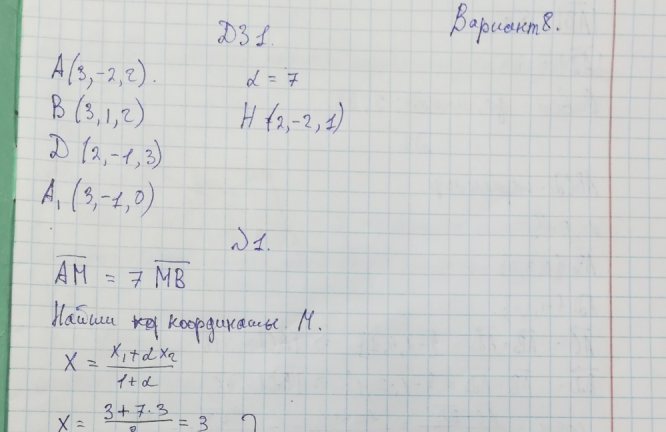 ДЗ 1.
Вариант 8.
A(3,-2,2).
α = 7
B(3,1,2)
H(-2,-2,1)
D(2,-1,3)
A₁(3,-1,0)
№1.
AM = 7 MB
Найти координаты M.
x = (x₁+αx₂)/(1+α)
x = (3+7·3)/8 = 3